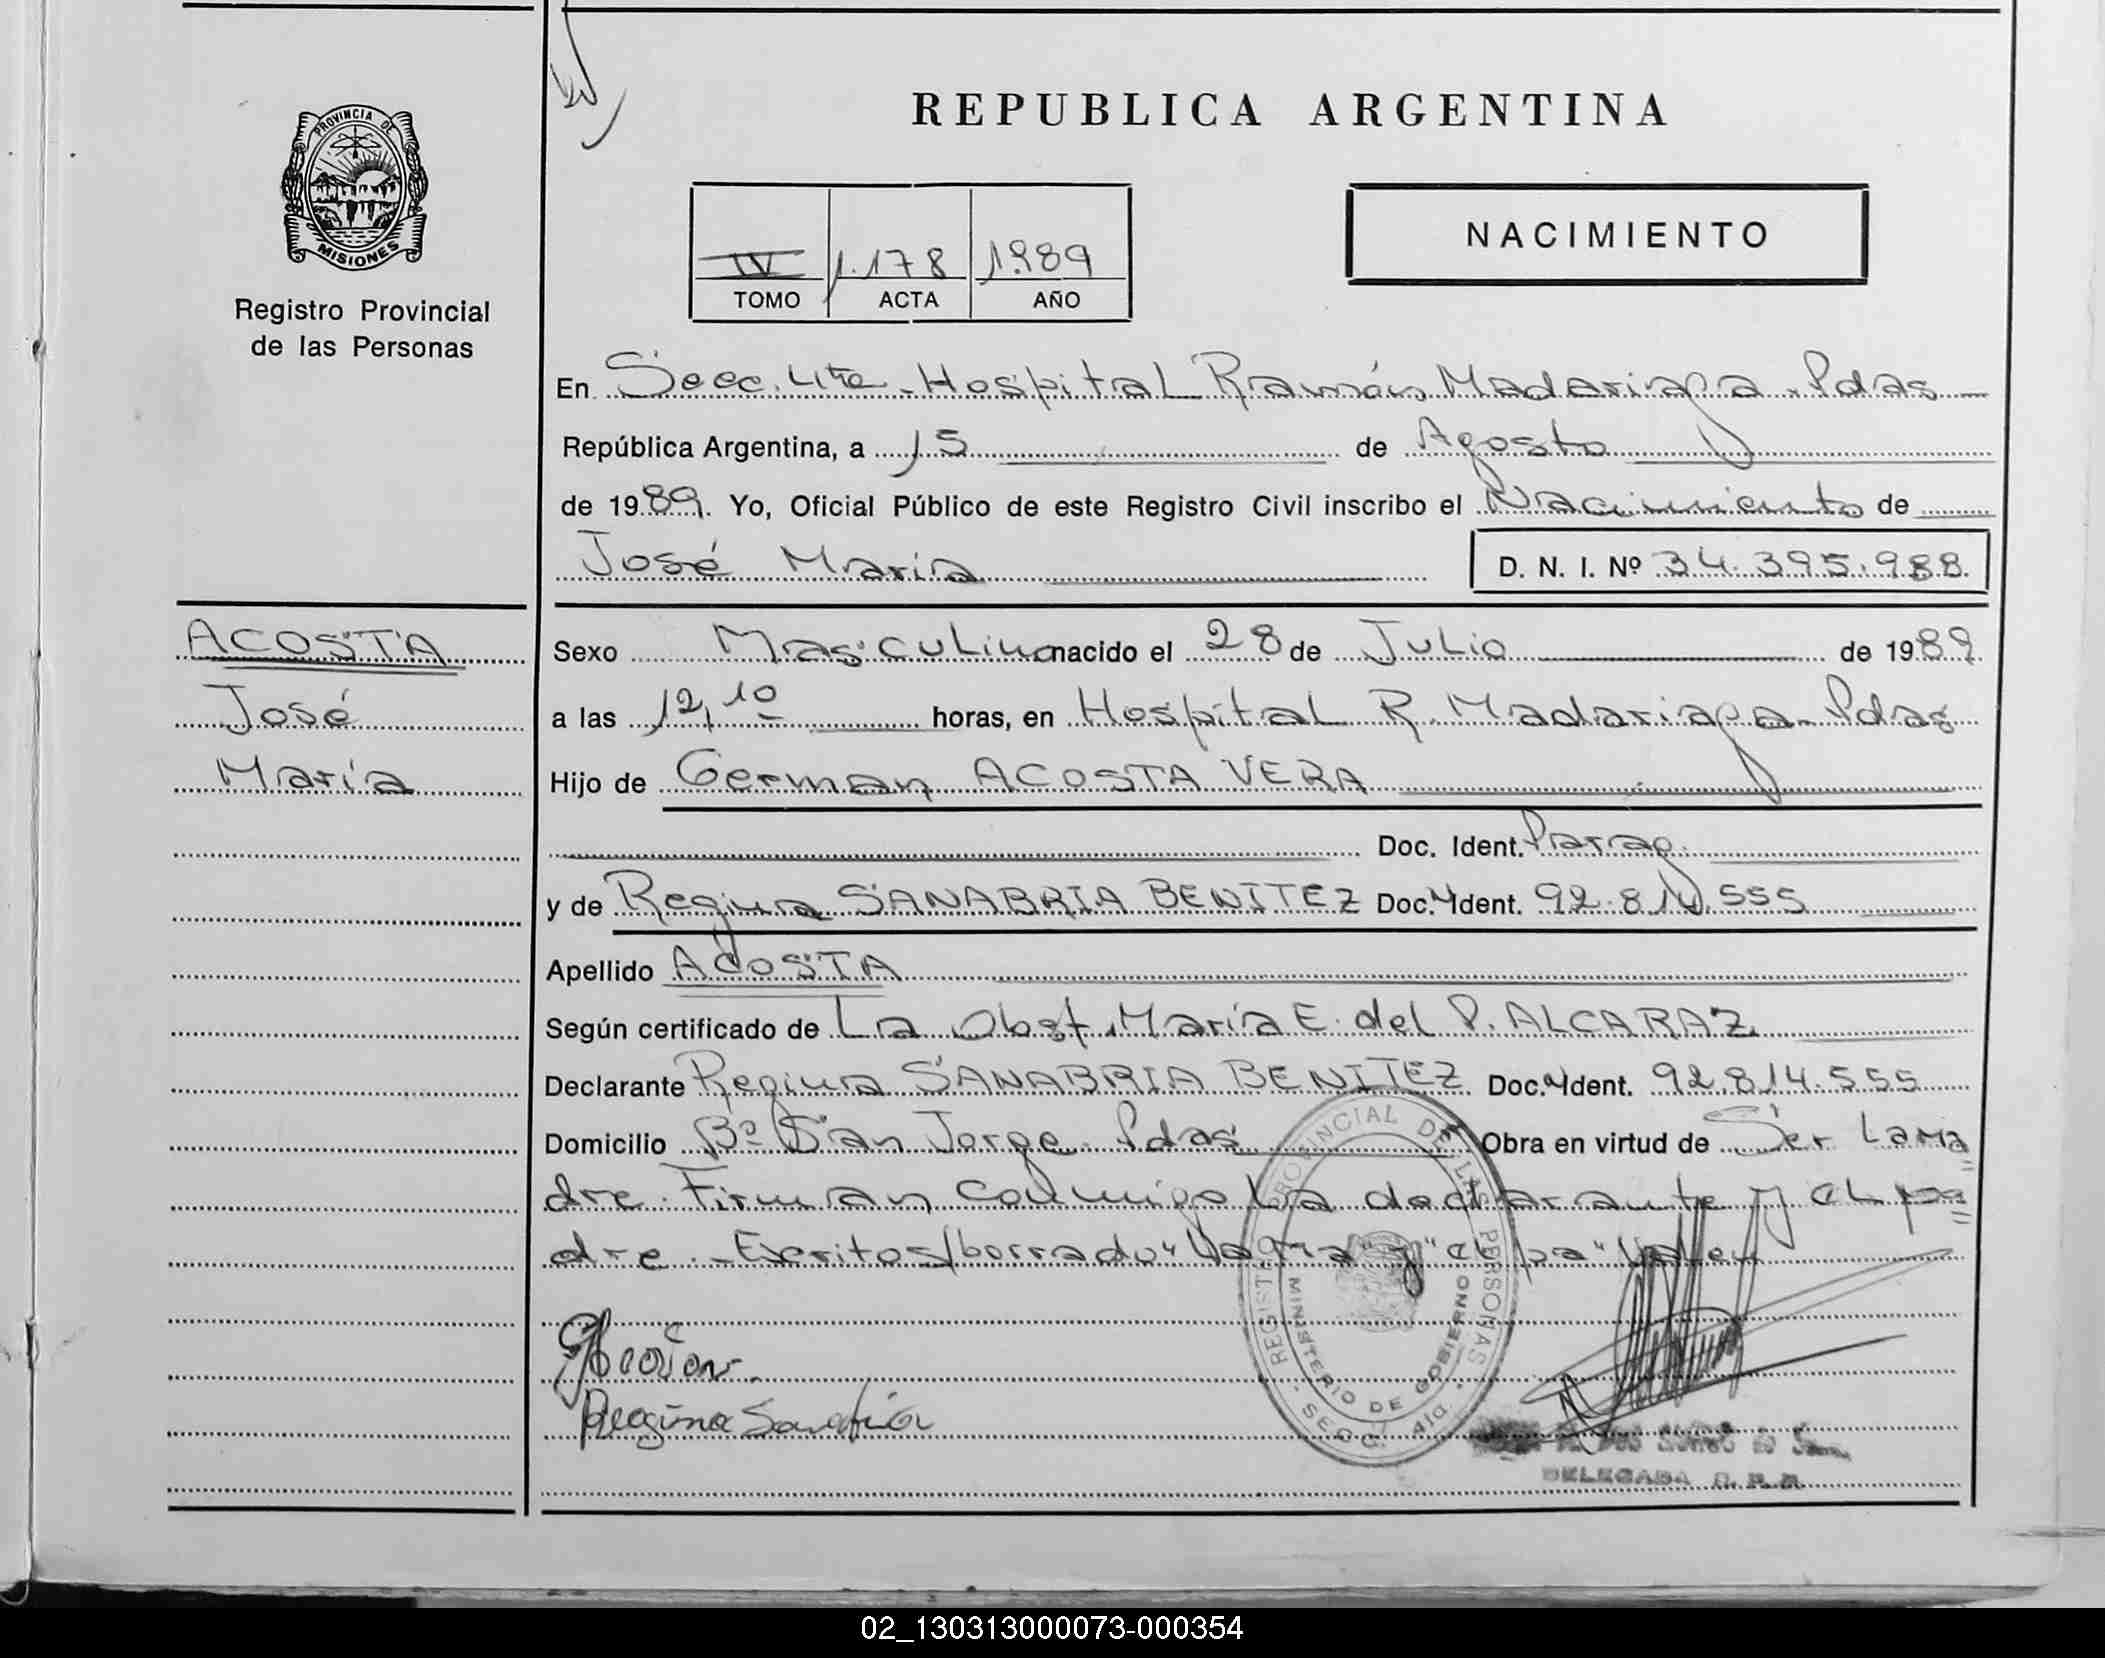 REPUBLICA ARGENTINA
PROVINCIA DE
MISIONES
Registro Provincial
de las Personas
IV 1.178 1989
TOMO ACTA AÑO
NACIMIENTO
En Secc. 4ta. Hospital Ramón Madariaga. Pdas
República Argentina, a 15 de Agosto
de 1989. Yo, Oficial Público de este Registro Civil inscribo el Nacimiento de
José María
D. N. I. Nº 34.395.988.
ACOSTA
José
María
Sexo Masculino nacido el 28 de Julio de 1989
a las 12,10 horas, en Hospital R. Madariaga. Pdas
Hijo de German ACOSTA VERA
Doc. Ident. Parag.
y de Regina SANABRIA BENITEZ Doc. Ident. 92.814.555
Apellido ACOSTA
Según certificado de La Obst. María E. del P. ALCARAZ
Declarante Regina SANABRIA BENITEZ Doc. Ident. 92.814.555
Domicilio Bº San Jorge. Pdas Obra en virtud de Ser La ma
dre. Firman conmigo La declarante y el pa
dre. Escritos/borrado "La ma" y "el pa" Valen
REGISTRO PROVINCIAL DE LAS PERSONAS
MINISTERIO DE GOBIERNO
SECC. 4ta.
Regina Sanabria
DELEGADA
02_130313000073-000354